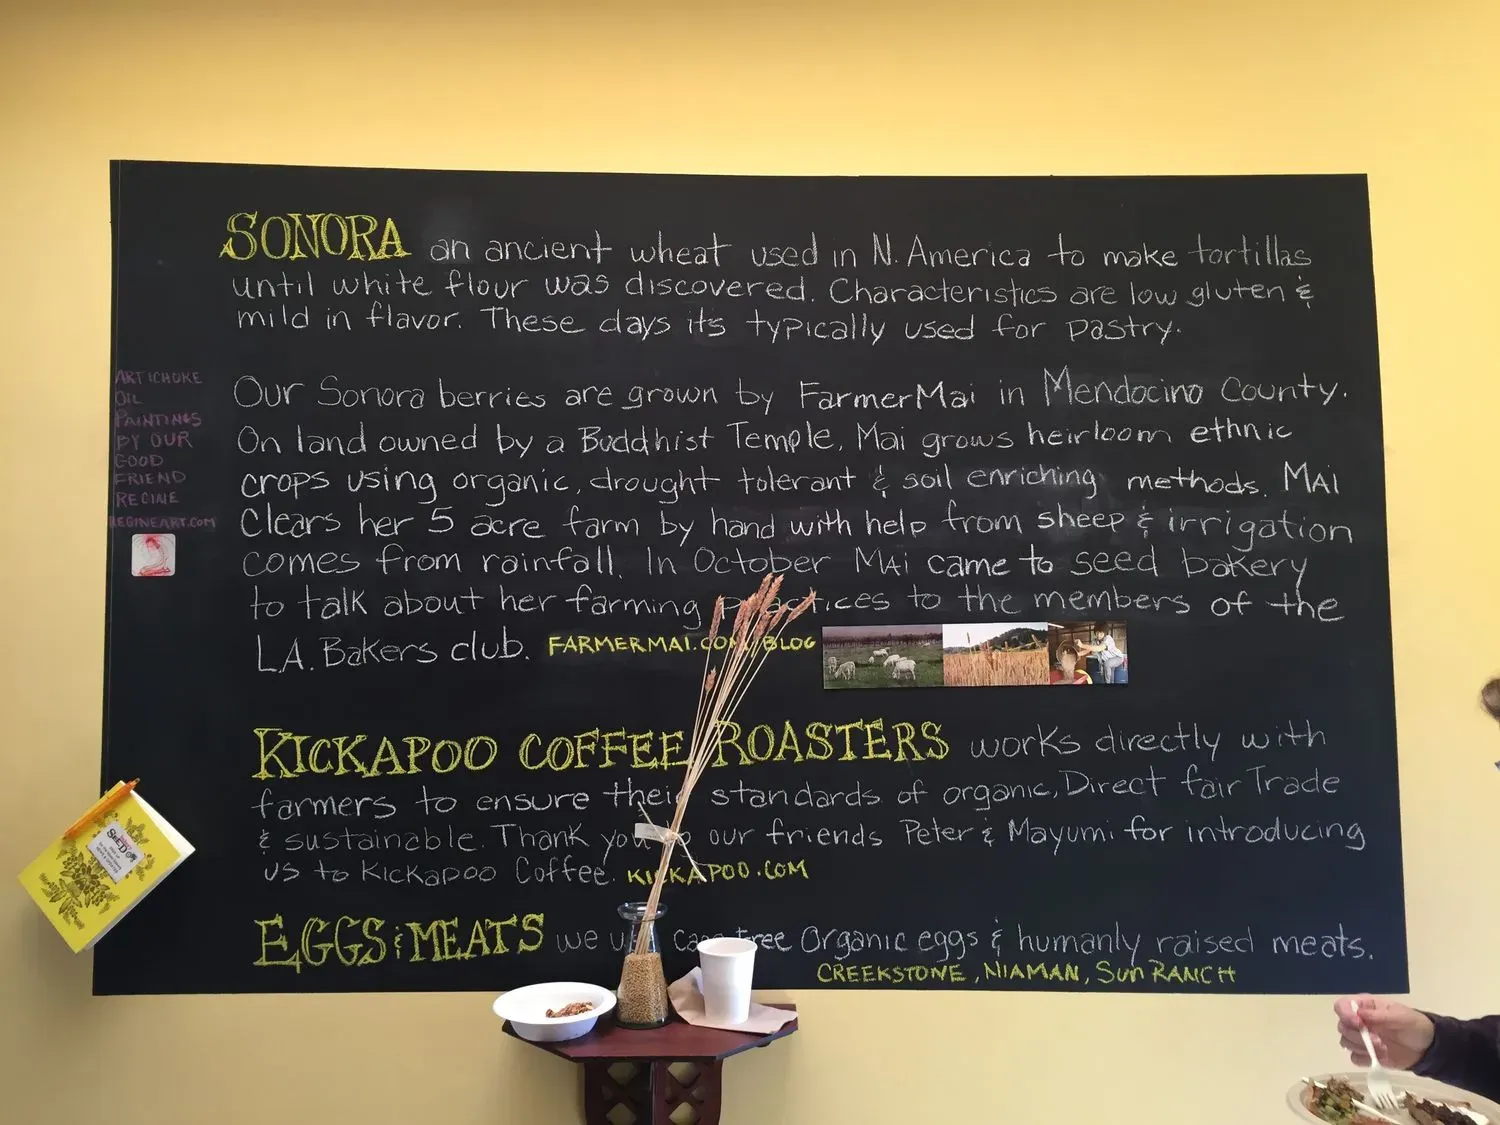 SONORA an ancient wheat used in N. America to make tortillas
until white flour was discovered. Characteristics are low gluten &
mild in flavor. These days its typically used for pastry.
Our Sonora berries are grown by FarmerMai in Mendocino County.
On land owned by a Buddhist Temple, Mai grows heirloom ethnic
crops using organic, drought tolerant & soil enriching methods. MAi
Clears her 5 acre farm by hand with help from sheep & irrigation
comes from rainfall. In October MAi came to seed bakery
to talk about her farming practices to the members of the
L.A. Bakers club. FARMERMAI.COM/BLOG
KICKAPOO COFFEE ROASTERS works directly with
farmers to ensure their standards of organic, Direct fair Trade
& sustainable. Thank you to our friends Peter & Mayumi for introducing
us to Kickapoo Coffee. KICKAPOO.COM
EGGS & MEATS we use cage free Organic eggs & humanly raised meats.
CREEKSTONE, NIAMAN, Sun RANCH
ARTICHOKE
OIL
PAINTINGS
BY OUR
GOOD
FRIEND
REGINE
REGINEART.COM
SEED